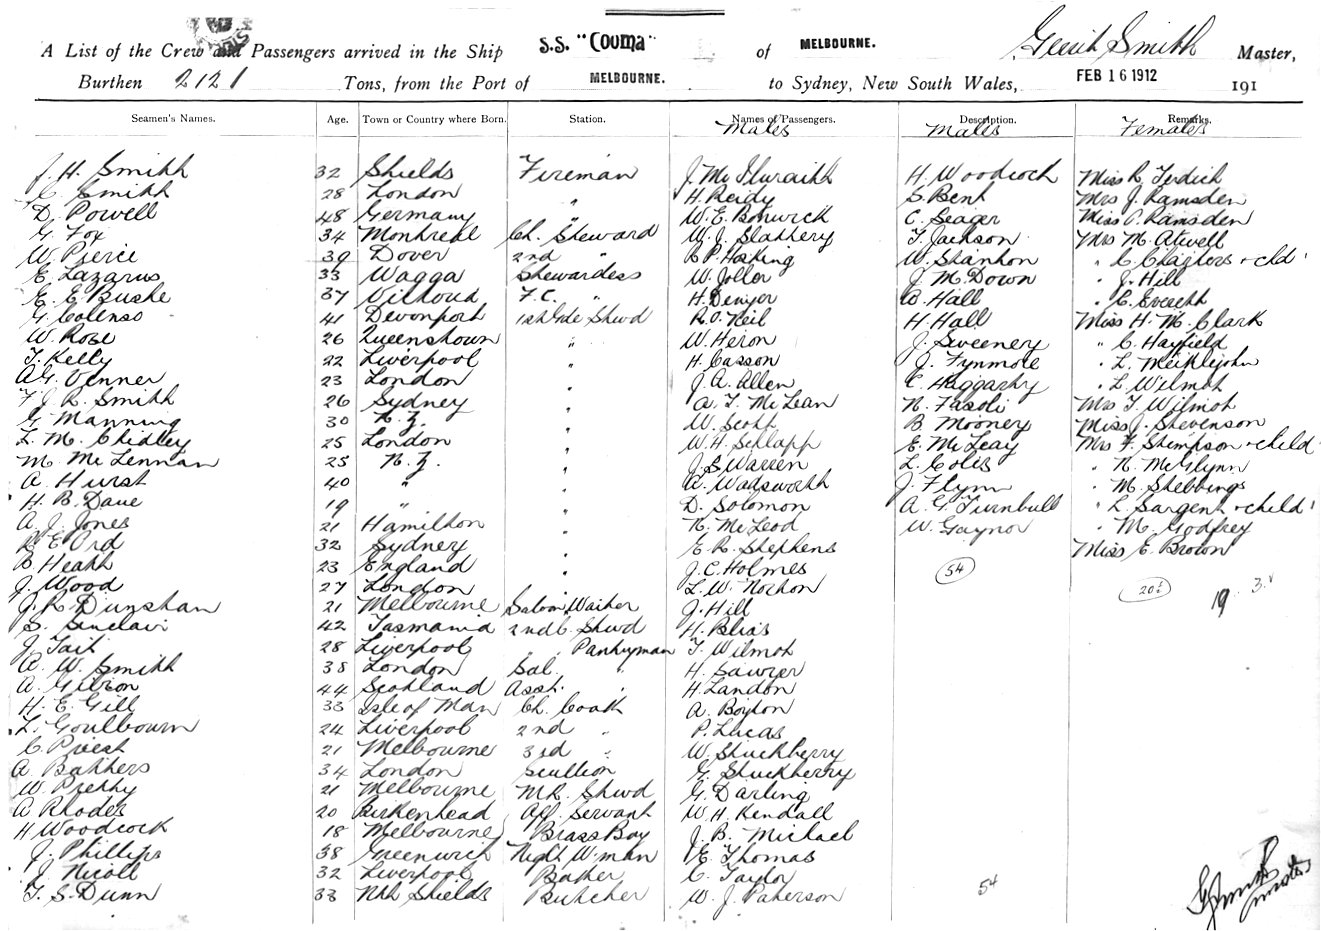 A List of the Crew and Passengers arrived in the Ship S.S. "COOMA" of MELBOURNE. Gerrit Smith Master,
Burthen 2121 Tons, from the Port of MELBOURNE. to Sydney, New South Wales, FEB 16 1912 191
Seamen's Names. Age. Town or Country where Born. Station. Names of Passengers. Description. Remarks.
Males Males Females
J. H. Smith 32 Shields Fireman J. Mc Ilwraith H. Woodcock Miss R. Terdich
C. Smith 28 London " H. Reidy S. Bent Mrs J. Ramsden
D. Powell 48 Germany W. E. Bonwick C. Seager Miss C. Ramsden
G. Fox 34 Montreal Ch. Steward W. J. Slattery T. Jackson Mrs M. Atwell
W. Pierce 39 Dover 2nd " C P. Hosking W. Stanton " C. Chaffers + cld
E. Lazarus 33 Wagga Stewardess W. Jollor J. M. Down " J. Hill
E. E. Buske 37 F.C. " H. Denyer A. Hall " C. Everett
G. Colenso 41 Devonport 1st Gde Stwd R. O. Neil H. Hall Miss H. M. Clark
W. Rose 26 Queenstown " W. Heron J. Sweeney " C. Hayfield
T. Kelly 22 Liverpool " H. Casson J. Fynmore " L. Meiklejohn
A G. Venner 23 London " J. A. Allen C. Haggarty " L Wilmot
F. J. R. Smith 26 Sydney " A. J. McLean N. Fasoli Mrs T. Wilmot
G. Manning 30 N.Z. " W. Scott B Mooney Miss J. Stevenson
L. M. Chidley 25 London " W. H. Schlapp E. McLeay Mrs F. Stimpson + child
M. McLennan 25 N.Z. " J. S. Warren L. Coles " N. McGlynn
A Hurst 40 " " A. Wadsworth J. Flynn " M. Stebbings
H. B. Dave 19 " " D. Solomon A. G. Turnbull " L. Sargent + child
A. J. Jones 21 Hamilton " N. McLeod W. Gaynor " M. Godfrey
R E Ord 32 Sydney " E. R. Stephens Miss E. Brown
B Heath 23 England " J. C. Holmes 54
J. Wood 27 London L. W. Norton 20 19 3
J. R. Dunstan 21 Melbourne Saloon Waiter J. Hill
S. Sinclair 42 Tasmania 2nd C. Stwd H. Blias
J. Tait 28 Liverpool " Pantryman T. Wilmot
A. W. Smith 38 London Sal. " H. Sawyer
A. Gibson 44 Scotland Asst. " H. Landon
H. E. Gill 33 Isle of Man Ch. Cook A. Boydon
L. Goulbourn 24 Liverpool 2nd " P. Lucas
C. Priest 21 Melbourne 3rd " W. Stuckberry
A Bakkers 34 London Scullion G. Stuckberry
W. Pretty 21 Melbourne M.R. Stwd G. Darling
A Rhodes 20 Birkenhead Off. Servant W. H. Kendall
H Woodcock 18 Melbourne Brass Boy J. B. Michael
J. Phillips 38 Greenwich Night W.man E. Thomas
J. Nicoll 32 Liverpool Baker C. Taylor
T. S. Dunn 33 Nth Shields Butcher W. J. Paterson 54
G Smith
Master